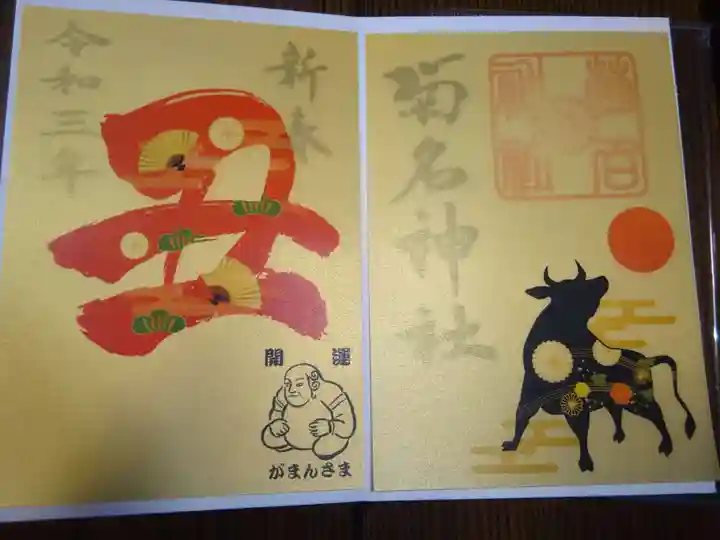 新春
丑
令和三年
開運
がまんさま
菊名神社